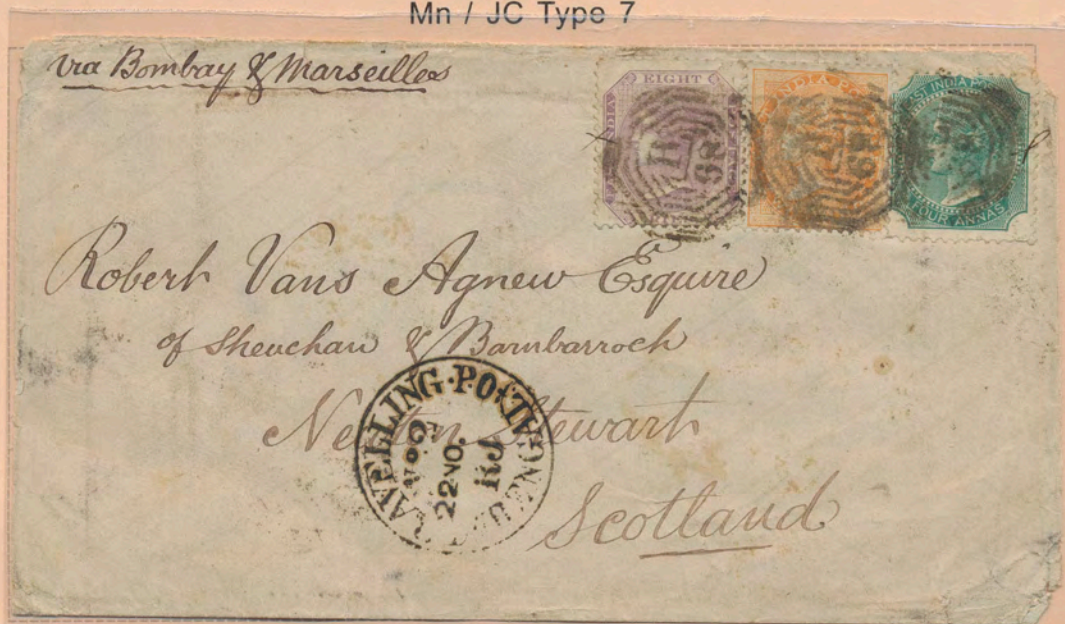 Mn / JC Type 7
via Bombay & Marseilles
EIGHT
INDIA
FOUR ANNAS
Robert Vans Agnew Esquire
of Sheuchan & Barnbarroch
Newton Stewart
Scotland
TRAVELLING·POST
BENGAL
22 NO.
RJ